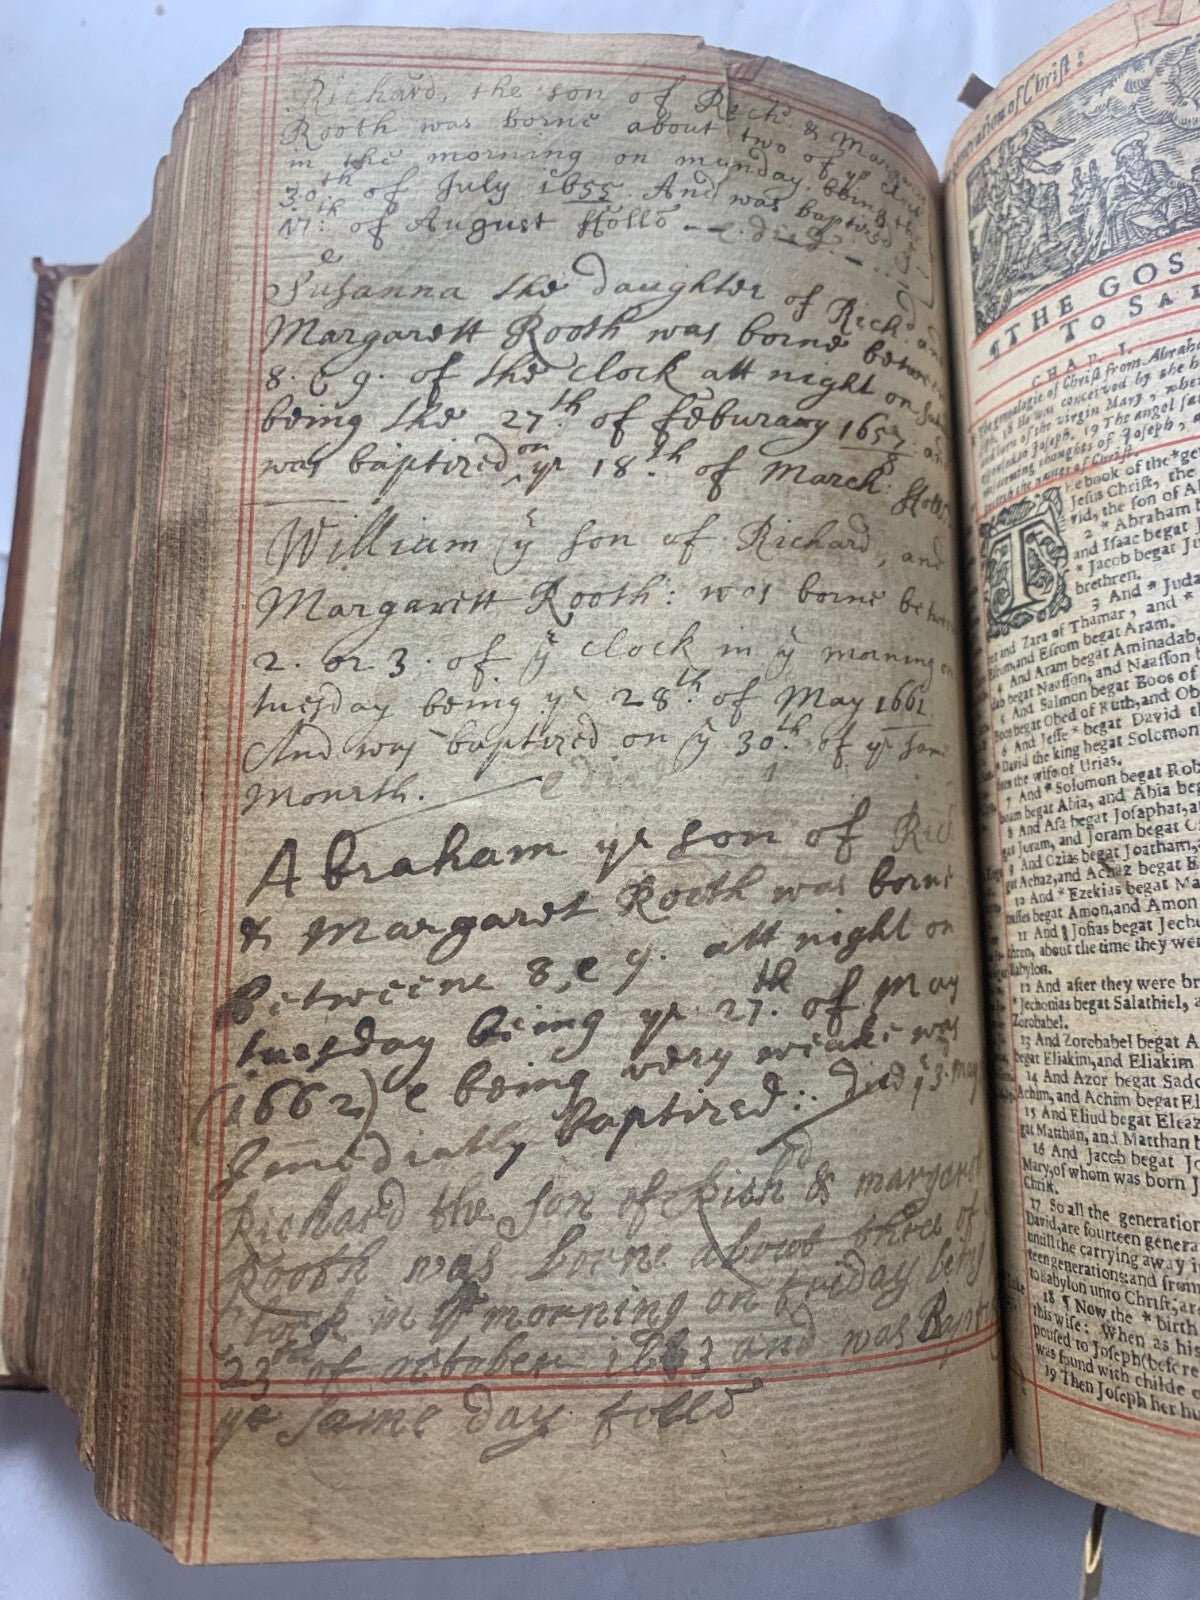 Richard, the son of Rich: & Margarett
Rooth was borne about two of ye clock
in the morning on munday being the
30th of July 1655. And was baptized
17th of August ffollo – – e died
Susanna the daughter of Rich: and
Margarett Rooth was borne betweene
8. e 9. of the clock att night on
being the 27th of feburary 1657. and
was baptized on ye 18th of March: ffollo:
William ye son of Richard, and
Margarett Rooth: was borne betwe
2. or 3. of ye clock in ye morning on
tuesday being ye 28th of May 1661
And was baptized on ye 30th of ye same
Mounth. e died
Abraham ye son of Rich
& Margaret Rooth was borne
betweene 8, e 9. att night on
tuesday being ye 27th of May
(1662) e being very weake was
Jmediatly baptized: died ye 3d May
Richard the son of Rich & margaret
Rooth was borne about three of
Clock in ye morning on friday being
23rd of october 1663 and was Bapti
ye same day follo
eneration of Christ:
¶THE GOS
TO SA
CHAP. I.
The genealogie of Christ from Abraha
18 He was conceived by the h
and born of the virgin Mary, whe
19 The angel sa
thoughts of Joseph, a
the names of Christ.
The book of the *ge
Jesus Christ, the
vid, the son of Ab
2 * Abraham b
and Isaac begat
* Jacob begat Ju
brethren.
3 And * Juda
and Zara of Thamar, and *
Esrom, and Esrom begat Aram.
4 And Aram begat Aminadab,
dab begat Naasson, and Naasson b
5 And Salmon begat Boos of
Boos begat Obed of Ruth, and Ob
6 And Jesse * begat David th
* David the king begat Solomon
the wife of Urias.
7 And * Solomon begat Rob
boam begat Abia, and Abia beg
8 And Asa begat Josaphat, a
gat Joram, and Joram begat O
9 And Ozias begat Joatham,
gat Achaz, and Achaz begat E
10 And * Ezekias begat Ma
nasses begat Amon, and Amon
11 And Josias begat Jech
thren, about the time they wer
Babylon.
12 And after they were br
* Jechonias begat Salathiel, a
Zorobabel.
13 And Zorobabel begat A
begat Eliakim, and Eliakim
14 And Azor begat Sado
Achim, and Achim begat El
15 And Eliud begat Eleaz
gat Matthan, and Matthan b
16 And Jacob begat Jo
Mary, of whom was born J
Christ.
17 So all the generation
David, are fourteen genera
untill the carrying away i
teen generations: and from
to Babylon unto Christ, ar
18 ¶ Now the * birth
this wise: When as his
poused to Joseph (before
was found with childe o
19 Then Joseph her hu